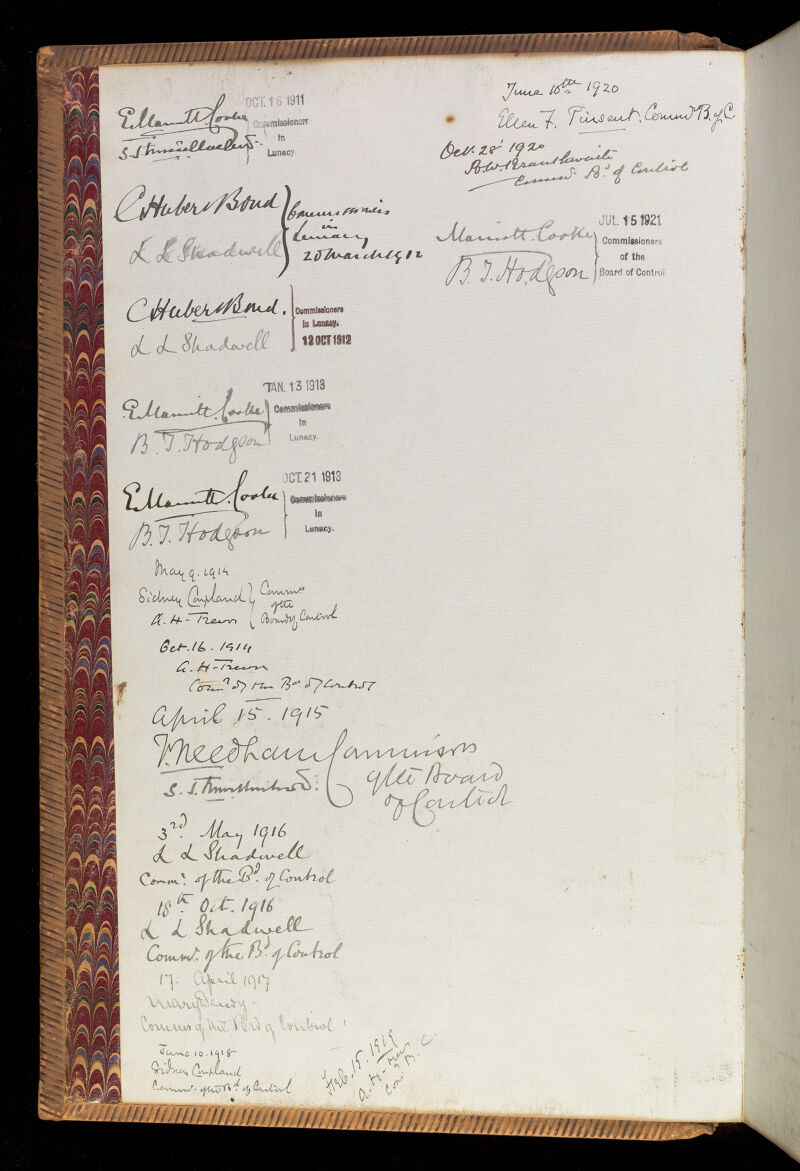 OCT. 16 1911
E. Marriott Cooke
Commissioners
in
Lunacy.
C Hubert Bond
L L Shadwell
Commissioners
in
Lunacy
20 March 1912
C Hubert Bond.
L L Shadwell
Commissioners
in Lunacy.
12 OCT 1912
JAN. 13 1913
E. Marriott. Cooke
B. T. Hodgson
Commissioners
in
Lunacy.
OCT. 21 1913
E. Marriott. Cooke
B. T. Hodgson
Commissioners
in
Lunacy.
May 9. 1914
Sidney Coupland
A. H. Trevor
Commrs
of the
Board of Control
Oct. 16. 1914
A. H. Trevor
Comr of the Bd of Control
April 15. 1915
F. Needham
Commissioners
of the Board
of Control
3rd. May 1916
L L Shadwell
Commr. of the Bd. of Control
18th. Oct. 1916
L L Shadwell
Commr. of the Bd. of Control
17. April 1917
Mary Dendy.
June 10. 1918
Sidney Coupland
Commr. of the Bd. of Control
Feb. 15. 1919
A. H. Trevor
Comr B. C.
June 10th 1920
Ellen F. Pinsent. Commr B. of C.
Oct. 28 1920
Commr. Bd. of Control
JUL. 15 1921
Marriott. Cooke
B. T. Hodgson
Commissioners
of the
Board of Control